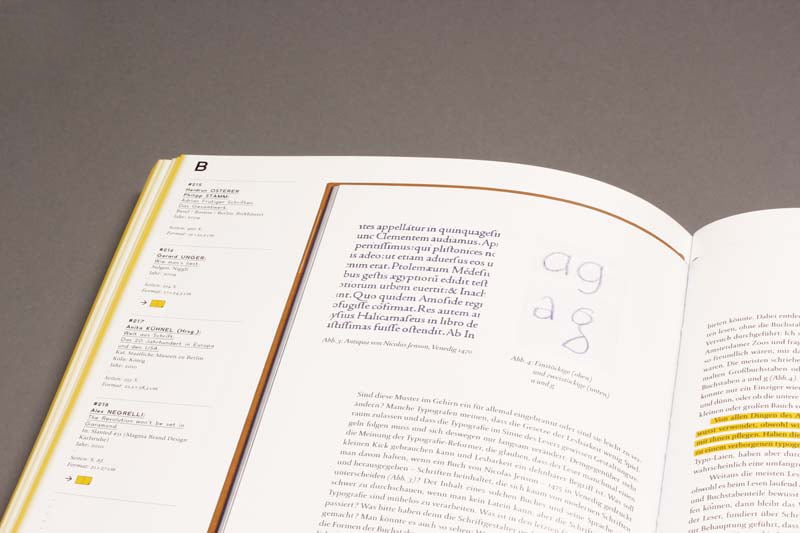 B
#215
Heidrun OSTERER
Philipp STAMM:
Adrian Frutiger Schriften
Das Gesamtwerk
Basel / Boston / Berlin: Birkhäuser
Jahr: 2009
#216
Gerard UNGER:
Wie man's liest
Sulgen: Niggli
Jahr: 2009
#217
Anita KÜHNEL (Hrsg.):
Welt aus Schrift
Das 20. Jahrhundert in Europa
und den USA
Kat. Staatliche Museen zu Berlin
Köln: König
Jahr: 2010
#218
Alex NEGRELLI:
The Revolution won't be set in
Garamond
In: Slanted #11 (Magma Brand Design
Karlsruhe)
Jahr: 2010
ites appellatur in quinquagesi
unc Clementem audiamus. Apı
peritissimus: qui plistonices nc
is adeo: ut etiam aduersus eos u
enim erat. Ptolemæum Médesi
bus gestis ægyptiorū edidit test
ptoriorum urbem euertit: & Inach
nt. Quo quidem Amoside regn
ofugisse cōfirmat. Res autem a
ysius Halicarnaseus in libro de
istissimas fuisse ostendit. Ab In
Abb. 3: Antiqua von Nicolas Jenson, Venedig 1470
ag
ag
Abb. 4: Einstöckige (oben)
und zweistöckige (unten)
a und g
Sind diese Muster im Gehirn ein für allemal eingebrannt oder sind sie leicht zu ver-
ändern? Manche Typografen meinen, dass die Gesetze der Lesbarkeit wenig Spiel-
raum zulassen und dass die Typografie im Sinne des Lesers gewissen Gestaltungsre-
geln folgen muss und sich deswegen nur langsam verändert. Demgegenüber steht
die Meinung der Typografie-Reformer, die glauben, dass der Leser manchmal einen
kleinen Kick gebrauchen kann und Lesbarkeit ein dehnbarer Begriff ist. Was soll
man davon halten, wenn ein Buch von Nicolas Jenson – 1470 in Venedig gedruckt
und herausgegeben – Schriften beinhaltet, die sich kaum von modernen Schriften
unterscheiden (Abb. 3)? Der Inhalt eines solchen Buches und seine Sprache
schwer zu durchschauen, wenn man kein Latein kann, aber die Schrift
Typografie sind mühelos zu verarbeiten. Was ist in den letzten
passiert? Was bitte haben denn die Schriftgestalter
gemacht? Man könnte es auch so sehen:
die Formen der Buchstaben
bieten könnte. Dabei entdec
ten lesen, ohne die Buchstabe
Versuch durchgeführt: Ich
Amsterdamer Zoos und frag
so freundlich wären, mir da
waren. Die meisten schriebe
malten Großbuchstaben od
Buchstaben a und g (Abb. 4).
konnte nur ein Einziger wie
und dünn, oder ob die untere
kleinen oder großen Bauch
Von allen Dingen des A
wusst verwendet, obwohl wi
mit ihnen pflegen. Haben die
zu einem verborgenen typog
Typo-Laien, haben aber durc
wahrscheinlich eine umfangr
Weitaus die meisten Les
obwohl es beim Lesen laufend
und Buchstabenteile bewusst
fen können, dann bleibt das W
der Leser, fundiert über Schrif
zur Behauptung geführt, dass